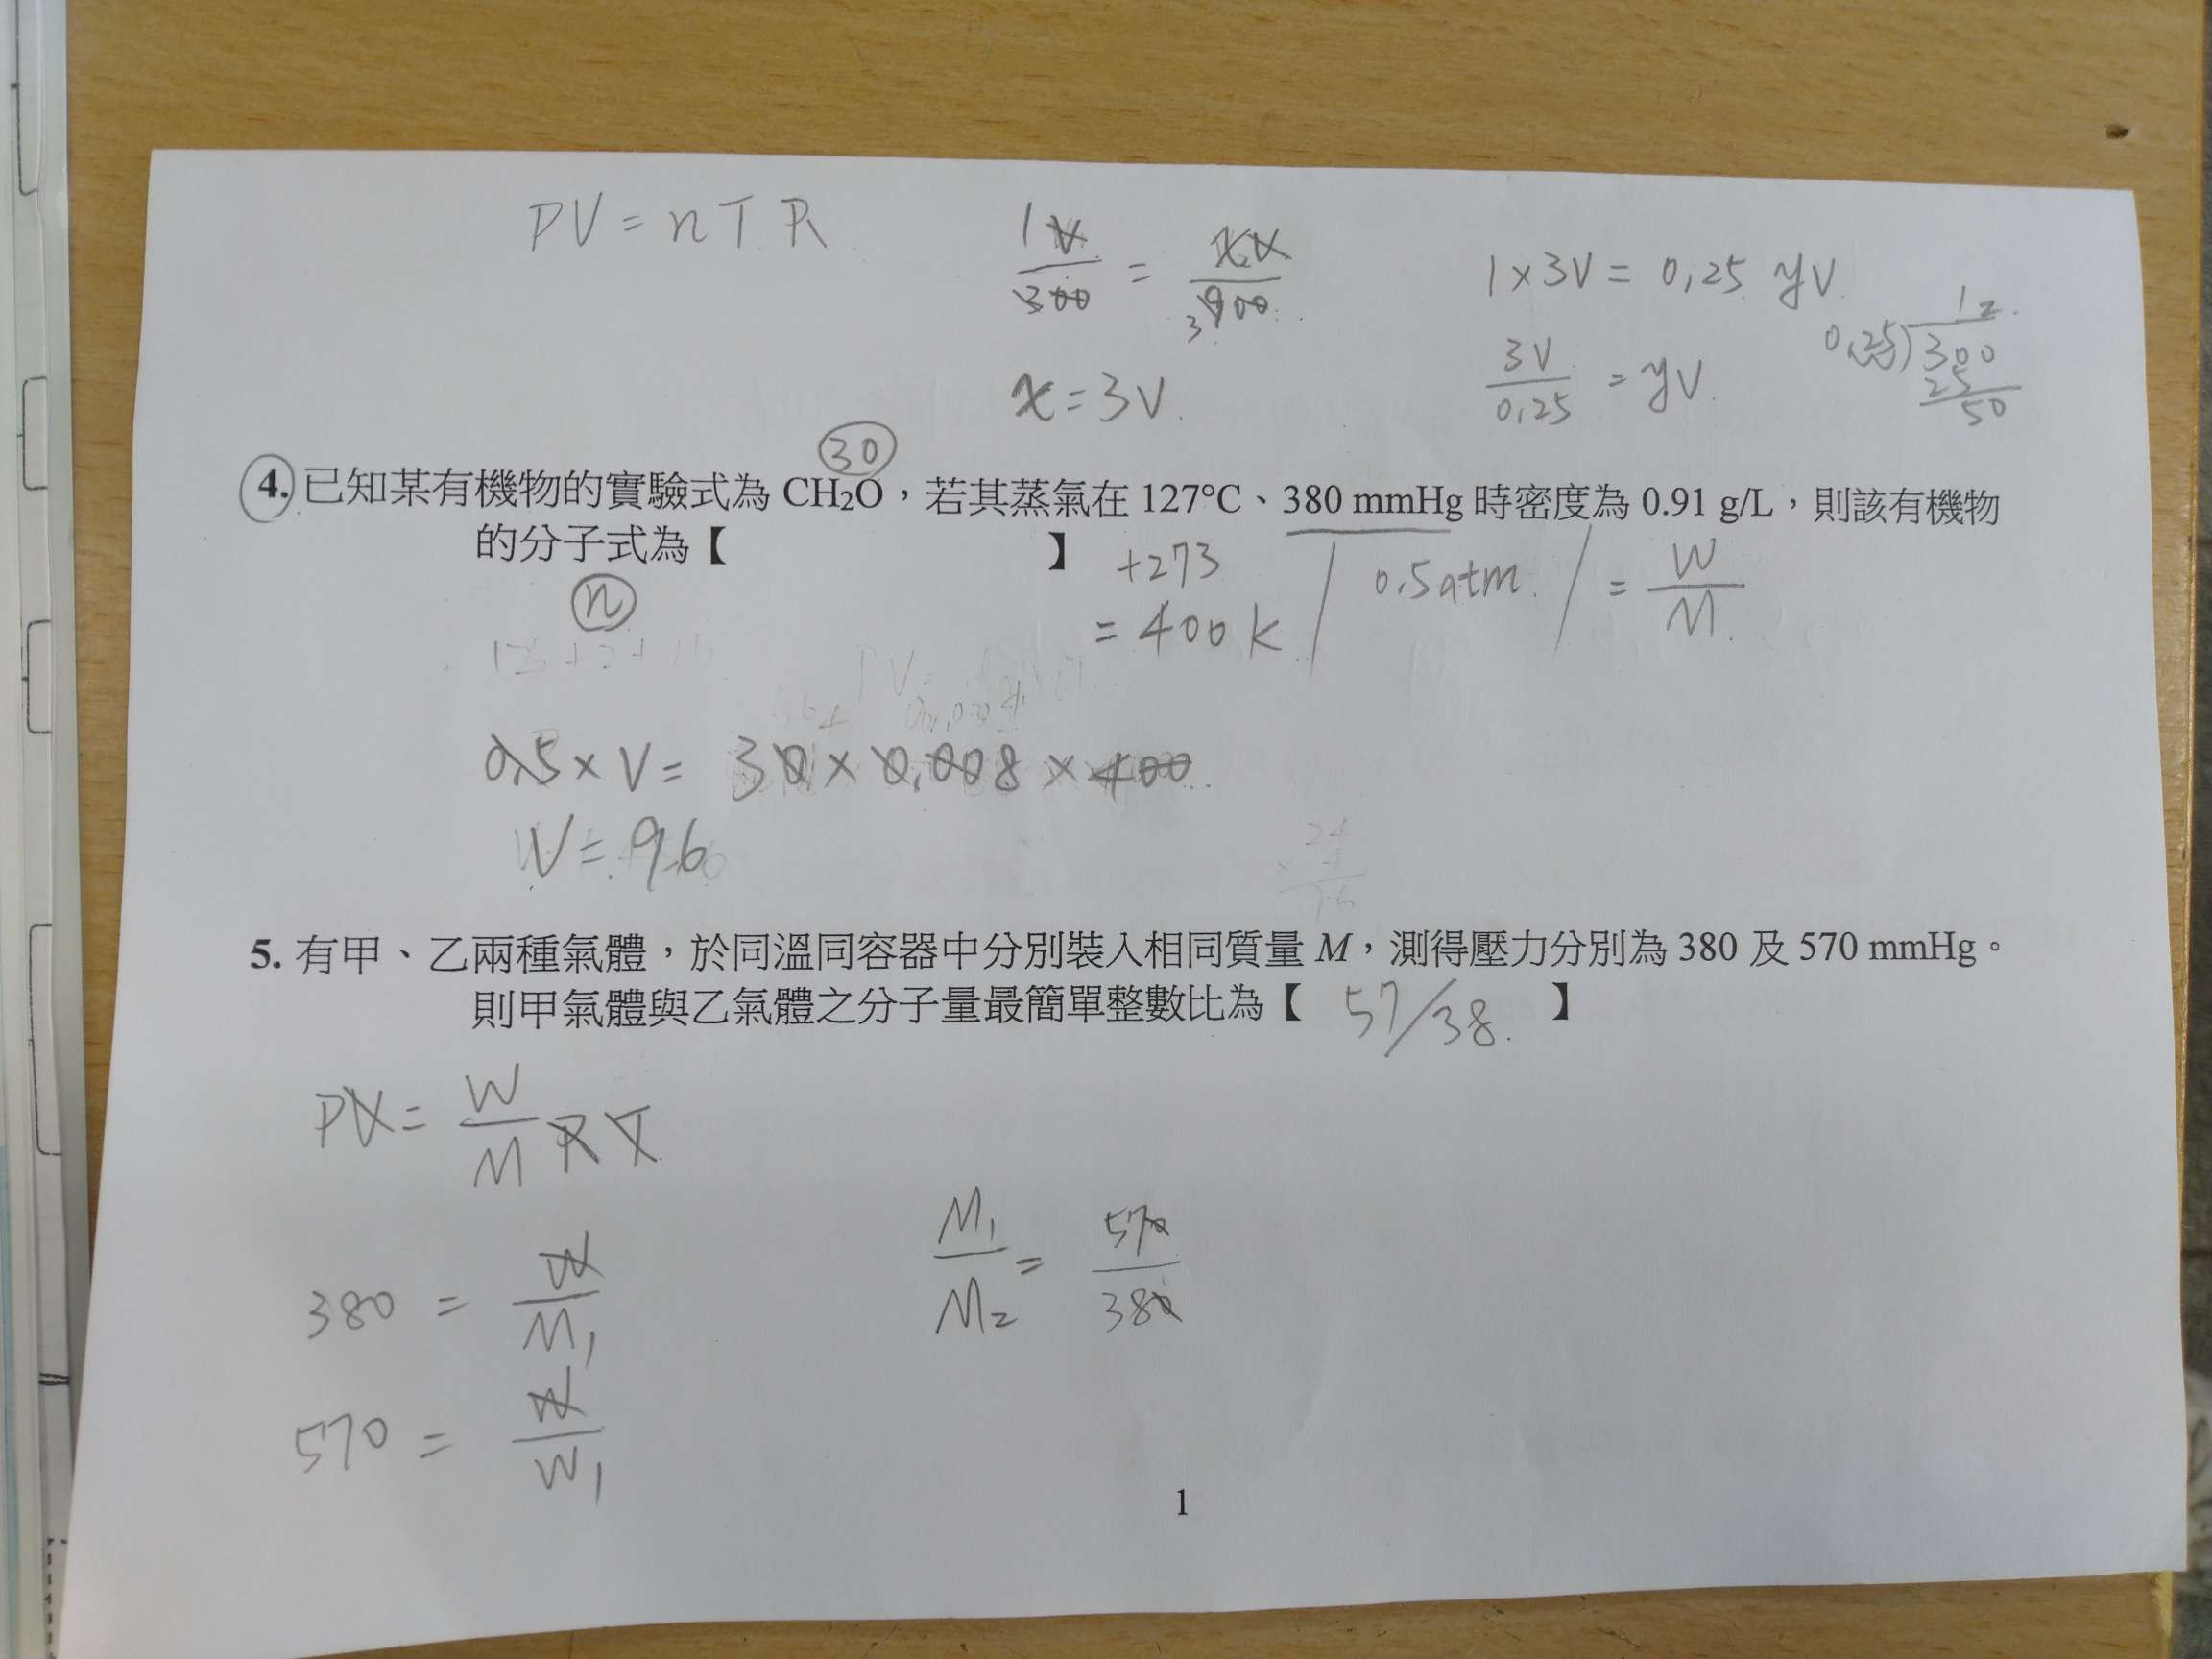 PV = nTR
1V/300 = x.V/900 3
1 × 3V = 0.25 yV
x = 3V
3V/0.25 = yV
12
0.25)300
25
50
30
4. 已知某有機物的實驗式為 CH₂O，若其蒸氣在 127°C、380 mmHg 時密度為 0.91 g/L，則該有機物
的分子式為【 】
n
+273
= 400 k / 0.5 atm. / = W/M
12 + 2 + 16
PV =
0.5 × V = 30 × 0.008 × 400
V = 96
24
5. 有甲、乙兩種氣體，於同溫同容器中分別裝入相同質量 M，測得壓力分別為 380 及 570 mmHg。
則甲氣體與乙氣體之分子量最簡單整數比為【 57/38. 】
PV = W/M RT
380 = W/M₁
M₁/M₂ = 570/380
570 = W/W₁
1